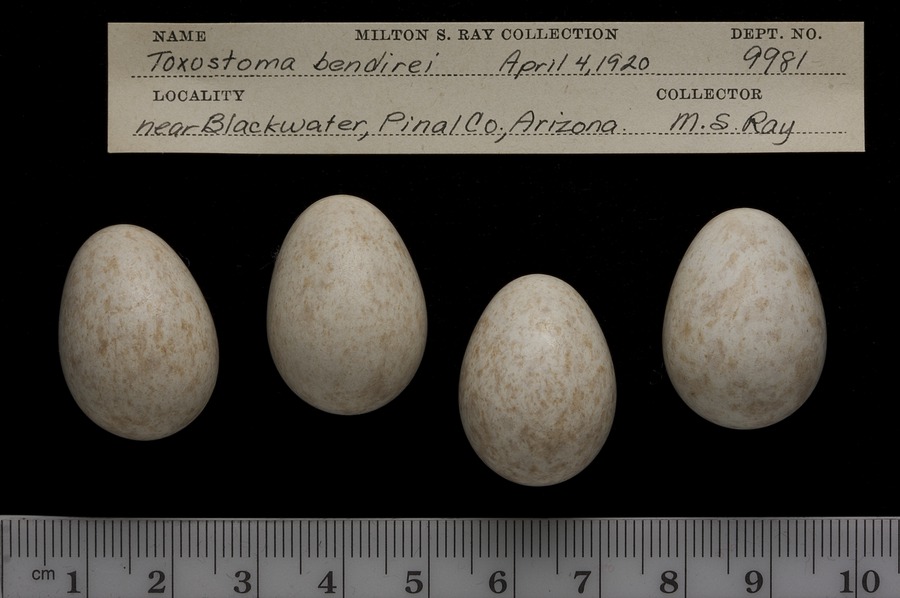 NAME MILTON S. RAY COLLECTION DEPT. NO.
Toxostoma bendirei April 4, 1920 9981
LOCALITY COLLECTOR
near Blackwater, Pinal Co., Arizona. M. S. Ray
cm 1 2 3 4 5 6 7 8 9 10